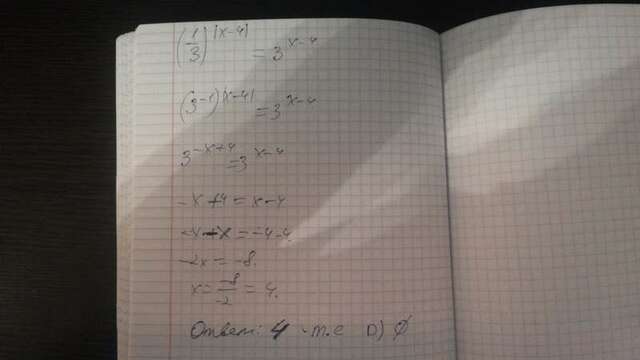 (1/3)^|x-4| = 3^x-4
(3^-1)^|x-4| = 3^x-4
3^-x+4 = 3^x-4
-x+4 = x-4
-x-x = -4-4.
-2x = -8.
x = -8/-2 = 4.
Ответ: 4 т.е D) ∅